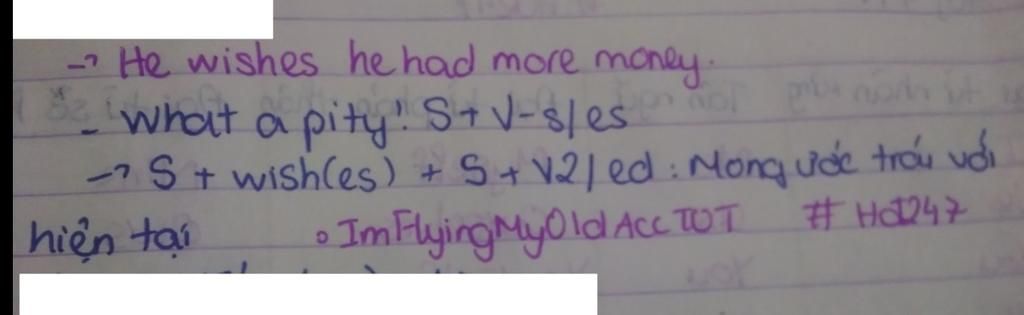 → He wishes he had more money.
- What a pity! S + V-s/es
→ S + wish(es) + S + V2/ed : Mong ước trái với
hiện tại ∘ ImFlyingMyOldAccTOT # Hd247